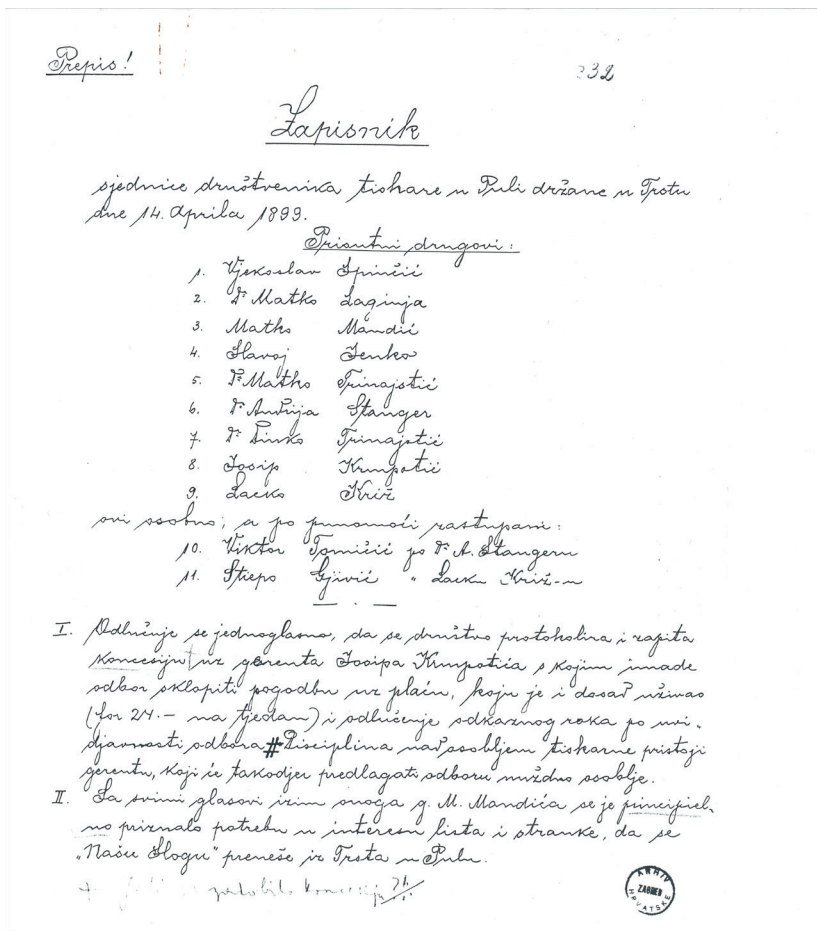 Prepis!
32
Zapisnik
sjednice društvenika tiskare u Puli držane u Trstu
dne 14. Aprila 1899.
Prisutni drugovi:
1. Vjekoslav Spinčić
2. Dr Matko Laginja
3. Matko Mandić
4. Slavoj Jenko
5. Dr Matko Trinajstić
6. Dr Andrija Stanger
7. Dr Dinko Trinajstić
8. Josip Krmpotić
9. Lacko Križ
ovi osobno; a po punomoći zastupani:
10. Viktor Tomičić po Dr A. Stangeru
11. Stiepo Gjivić " Lacku Križ-u
I. Odlučuje se jednoglasno, da se društvo protokolira i zapita
koncesiju uz gerenta Josipa Krmpotića s kojim imade
odbor sklopiti pogodbu uz plaću, koju je i dosad uživao
(for 24.- na tjedan) i odlučenje odkaznog roka po uvi-
djavnosti odbora # Disciplina nad osobljem tiskarne pristoji
gerentu, koji će takodjer predlagati odboru nuždno osoblje.
II. Sa svimi glasovi izim onoga g. M. Mandića se je principiel-
no priznalo potrebu u interesu lista i stranke, da se
„Našu Slogu" prenese iz Trsta u Pulu.
koncesiju
ARHIV HRVATSKE
ZAGREB